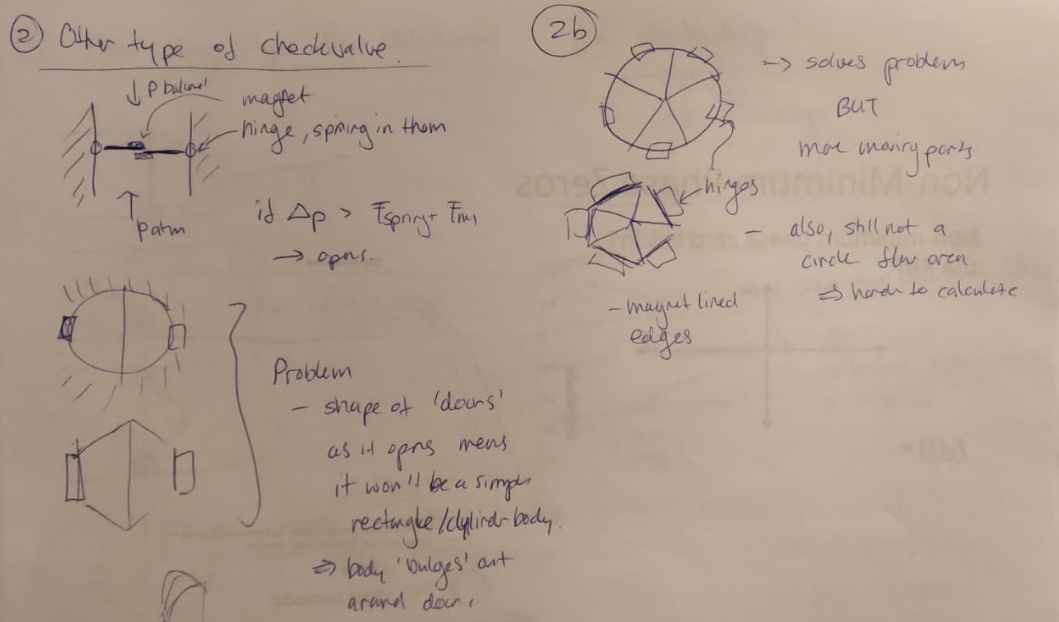 2
Other type of checkvalve.
↓ P
magnet
hinge, spring in them
↑
Patm
if Δp > Fspring +
→ opens.
Problem
- shape of 'doors'
as it opens means
it won't be a simple
rectangle/cylinder body.
⇒ body 'bulges' out
around door.
2b
→ solves problem
BUT
more moving parts
hinges
- also, still not a
circle flow area
⇒ harder to calculate
- magnet lined
edges
Non-Minimum Phase Zeros